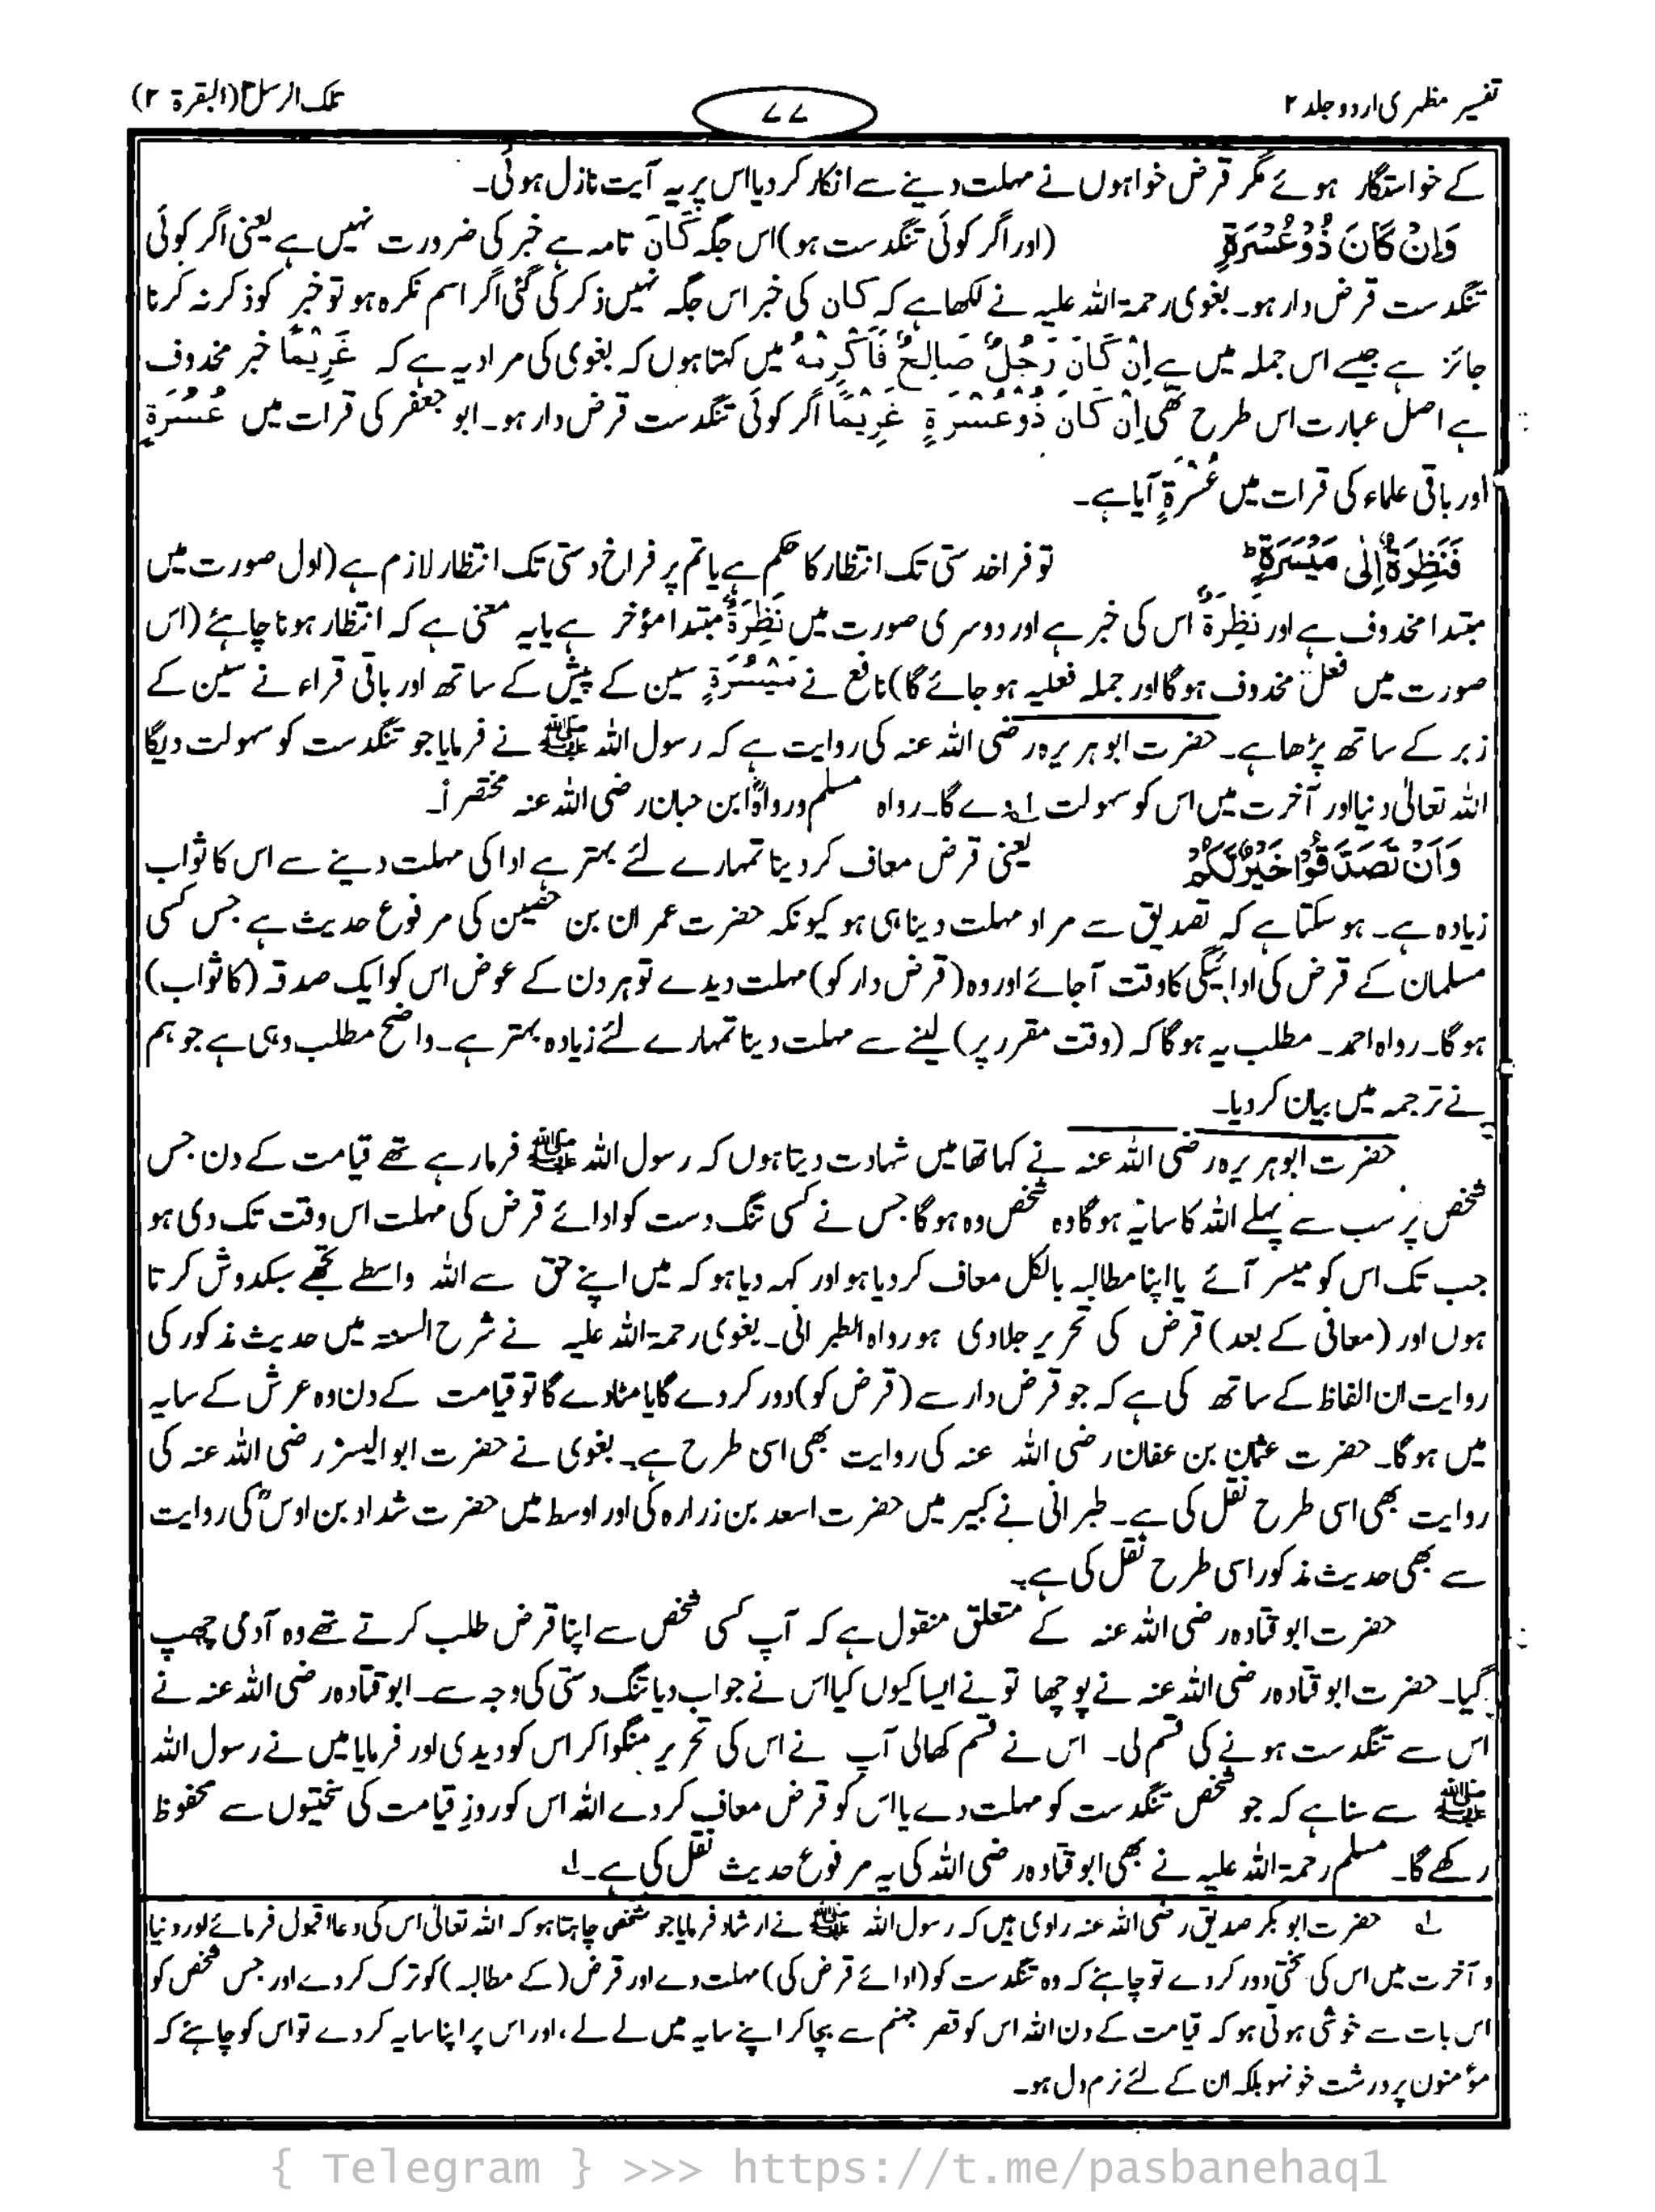 تفسیر مظہری اردو جلد ۲
۷۷
تلک الرسل ۳ (البقرۃ ۲)
کے خواستگار ہوئے مگر قرض خواہوں نے مہلت دینے سے انکار کر دیا اس پر یہ آیت نازل ہوئی۔
وَاِنْ كَانَ ذُوْ عُسْرَةٍ (اور اگر کوئی تنگدست ہو) اس جگہ كَانَ تامہ ہے خبر کی ضرورت نہیں ہے یعنی اگر کوئی
تنگدست قرض دار ہو۔ بغوی رحمۃ اللہ علیہ نے لکھا ہے کہ کان کی خبر اس جگہ نہیں ذکر کی گئی اگر اسم نکرہ ہو تو خبر کو ذکر نہ کرنا
جائز ہے جیسے اس جملہ میں ہے اِنْ كَانَ رَجُلٌ صَالِحٌ فَاَكْرِمْهُ میں کہتا ہوں کہ بغوی کی مراد یہ ہے کہ غَرِيْمًا خبر محذوف
ہے اصل عبارت اس طرح تھی اِنْ كَانَ ذُوْ عُسْرَةٍ غَرِيْمًا اگر کوئی تنگدست قرض دار ہو۔ ابو جعفر کی قرات میں عُسُرَةٍ
اور باقی علماء کی قرات میں عُسْرَةٍ آیا ہے۔
فَنَظِرَةٌ اِلٰى مَيْسَرَةٍ ؕ تو فراخدستی تک انتظار کا حکم ہے یا تم پر فراخ دستی تک انتظار لازم ہے (اول صورت میں
مبتدا محذوف ہے اور نَظِرَةٌ اس کی خبر ہے اور دوسری صورت میں نَظِرَةٌ مبتدا مؤخر ہے یا یہ معنی ہے کہ انتظار ہونا چاہئے (اس
صورت میں فعل محذوف ہوگا اور جملہ فعلیہ ہو جائے گا) نافع نے مَيْسُرَةٍ سین کے پیش کے ساتھ اور باقی قراء نے سین کے
زبر کے ساتھ پڑھا ہے۔ حضرت ابوہریرہ رضی اللہ عنہ کی روایت ہے کہ رسول اللہ ﷺ نے فرمایا جو تنگدست کو سہولت دیگا
اللہ تعالیٰ دنیا اور آخرت میں اس کو سہولت دے گا۔ رواہ مسلم ورواہ ابن حبان رضی اللہ عنہ مختصراً۔
وَاَنْ تَصَدَّقُوْا خَيْرٌ لَّكُمْ یعنی قرض معاف کر دینا تمہارے لئے بہتر ہے ادا کی مہلت دینے سے اس کا ثواب
زیادہ ہے۔ ہو سکتا ہے کہ تصدیق سے مراد مہلت دینا ہی ہو کیونکہ حضرت عمران بن حصین کی مرفوع حدیث ہے جس کسی
مسلمان کے قرض کی ادائیگی کا وقت آجائے اور وہ (قرض دار کو) مہلت دیدے تو ہر دن کے عوض اس کو ایک صدقہ (کا ثواب)
ہوگا۔ رواہ احمد۔ مطلب یہ ہوگا کہ (وقت مقرر پر) لینے سے مہلت دینا تمہارے لئے زیادہ بہتر ہے۔ واضح مطلب وہی ہے جو ہم
نے ترجمہ میں بیان کر دیا۔
حضرت ابوہریرہ رضی اللہ عنہ نے کہا تھا میں شہادت دیتا ہوں کہ رسول اللہ ﷺ فرما رہے تھے قیامت کے دن جس
شخص پر سب سے پہلے اللہ کا سایہ ہوگا وہ شخص وہ ہوگا جس نے کسی تنگ دست کو ادائے قرض کی مہلت اس وقت تک دی ہو
جب تک اس کو میسر آئے یا اپنا مطالبہ بالکل معاف کر دیا ہو اور کہہ دیا ہو کہ میں اپنے حق سے اللہ واسطے تجھے سبکدوش کرتا
ہوں اور (معافی کے بعد) قرض کی تحریر جلادی ہو رواہ الطبرانی۔ بغوی رحمۃ اللہ علیہ نے شرح السنۃ میں حدیث مذکور کی
روایت ان الفاظ کے ساتھ کی ہے کہ جو قرض دار سے (قرض کو) دور کر دے گا یا مٹادے گا تو قیامت کے دن وہ عرش کے سایہ
میں ہوگا۔ حضرت عثمان بن عفان رضی اللہ عنہ کی روایت بھی اسی طرح ہے۔ بغوی نے حضرت ابو الیسر رضی اللہ عنہ کی
روایت بھی اسی طرح نقل کی ہے۔ طبرانی نے کبیر میں حضرت اسعد بن زرارہ کی اور اوسط میں حضرت شداد بن اوسؓ کی روایت
سے بھی حدیث مذکور اسی طرح نقل کی ہے۔
حضرت ابو قتادہ رضی اللہ عنہ کے متعلق منقول ہے کہ آپ کسی شخص سے اپنا قرض طلب کرتے تھے وہ آدمی چھپ
گیا۔ حضرت ابو قتادہ رضی اللہ عنہ نے پوچھا تو نے ایسا کیوں کیا اس نے جواب دیا تنگ دستی کی وجہ سے۔ ابو قتادہ رضی اللہ عنہ نے
اس سے تنگدست ہونے کی قسم لی۔ اس نے قسم کھالی آپ نے اس کی تحریر منگوا کر اس کو دیدی اور فرمایا میں نے رسول اللہ
ﷺ سے سنا ہے کہ جو شخص تنگدست کو مہلت دے یا اس کو قرض معاف کر دے اللہ اس کو روزِ قیامت کی سختیوں سے محفوظ
رکھے گا۔ مسلم رحمۃ اللہ علیہ نے بھی ابو قتادہ رضی اللہ کی یہ مرفوع حدیث نقل کی ہے۔ ۱؎
۱؎ حضرت ابو بکر صدیق رضی اللہ عنہ راوی ہیں کہ رسول اللہ ﷺ نے ارشاد فرمایا جو شخص چاہتا ہو کہ اللہ تعالیٰ اس کی دعا قبول فرمائے اور دنیا
و آخرت میں اس کی سختی دور کر دے تو چاہئے کہ وہ تنگدست کو (ادائے قرض کی) مہلت دے اور قرض (کے مطالبہ) کو ترک کر دے اور جس شخص کو
اس بات سے خوشی ہوتی ہو کہ قیامت کے دن اللہ اس کو قعر جہنم سے بچا کر اپنے سایہ میں لے لے، اور اس پر اپنا سایہ کر دے تو اس کو چاہئے کہ
مؤمنوں پر درشت خو نہو بلکہ ان کے لئے نرم دل ہو۔
{ Telegram } >>> https://t.me/pasbanehaq1